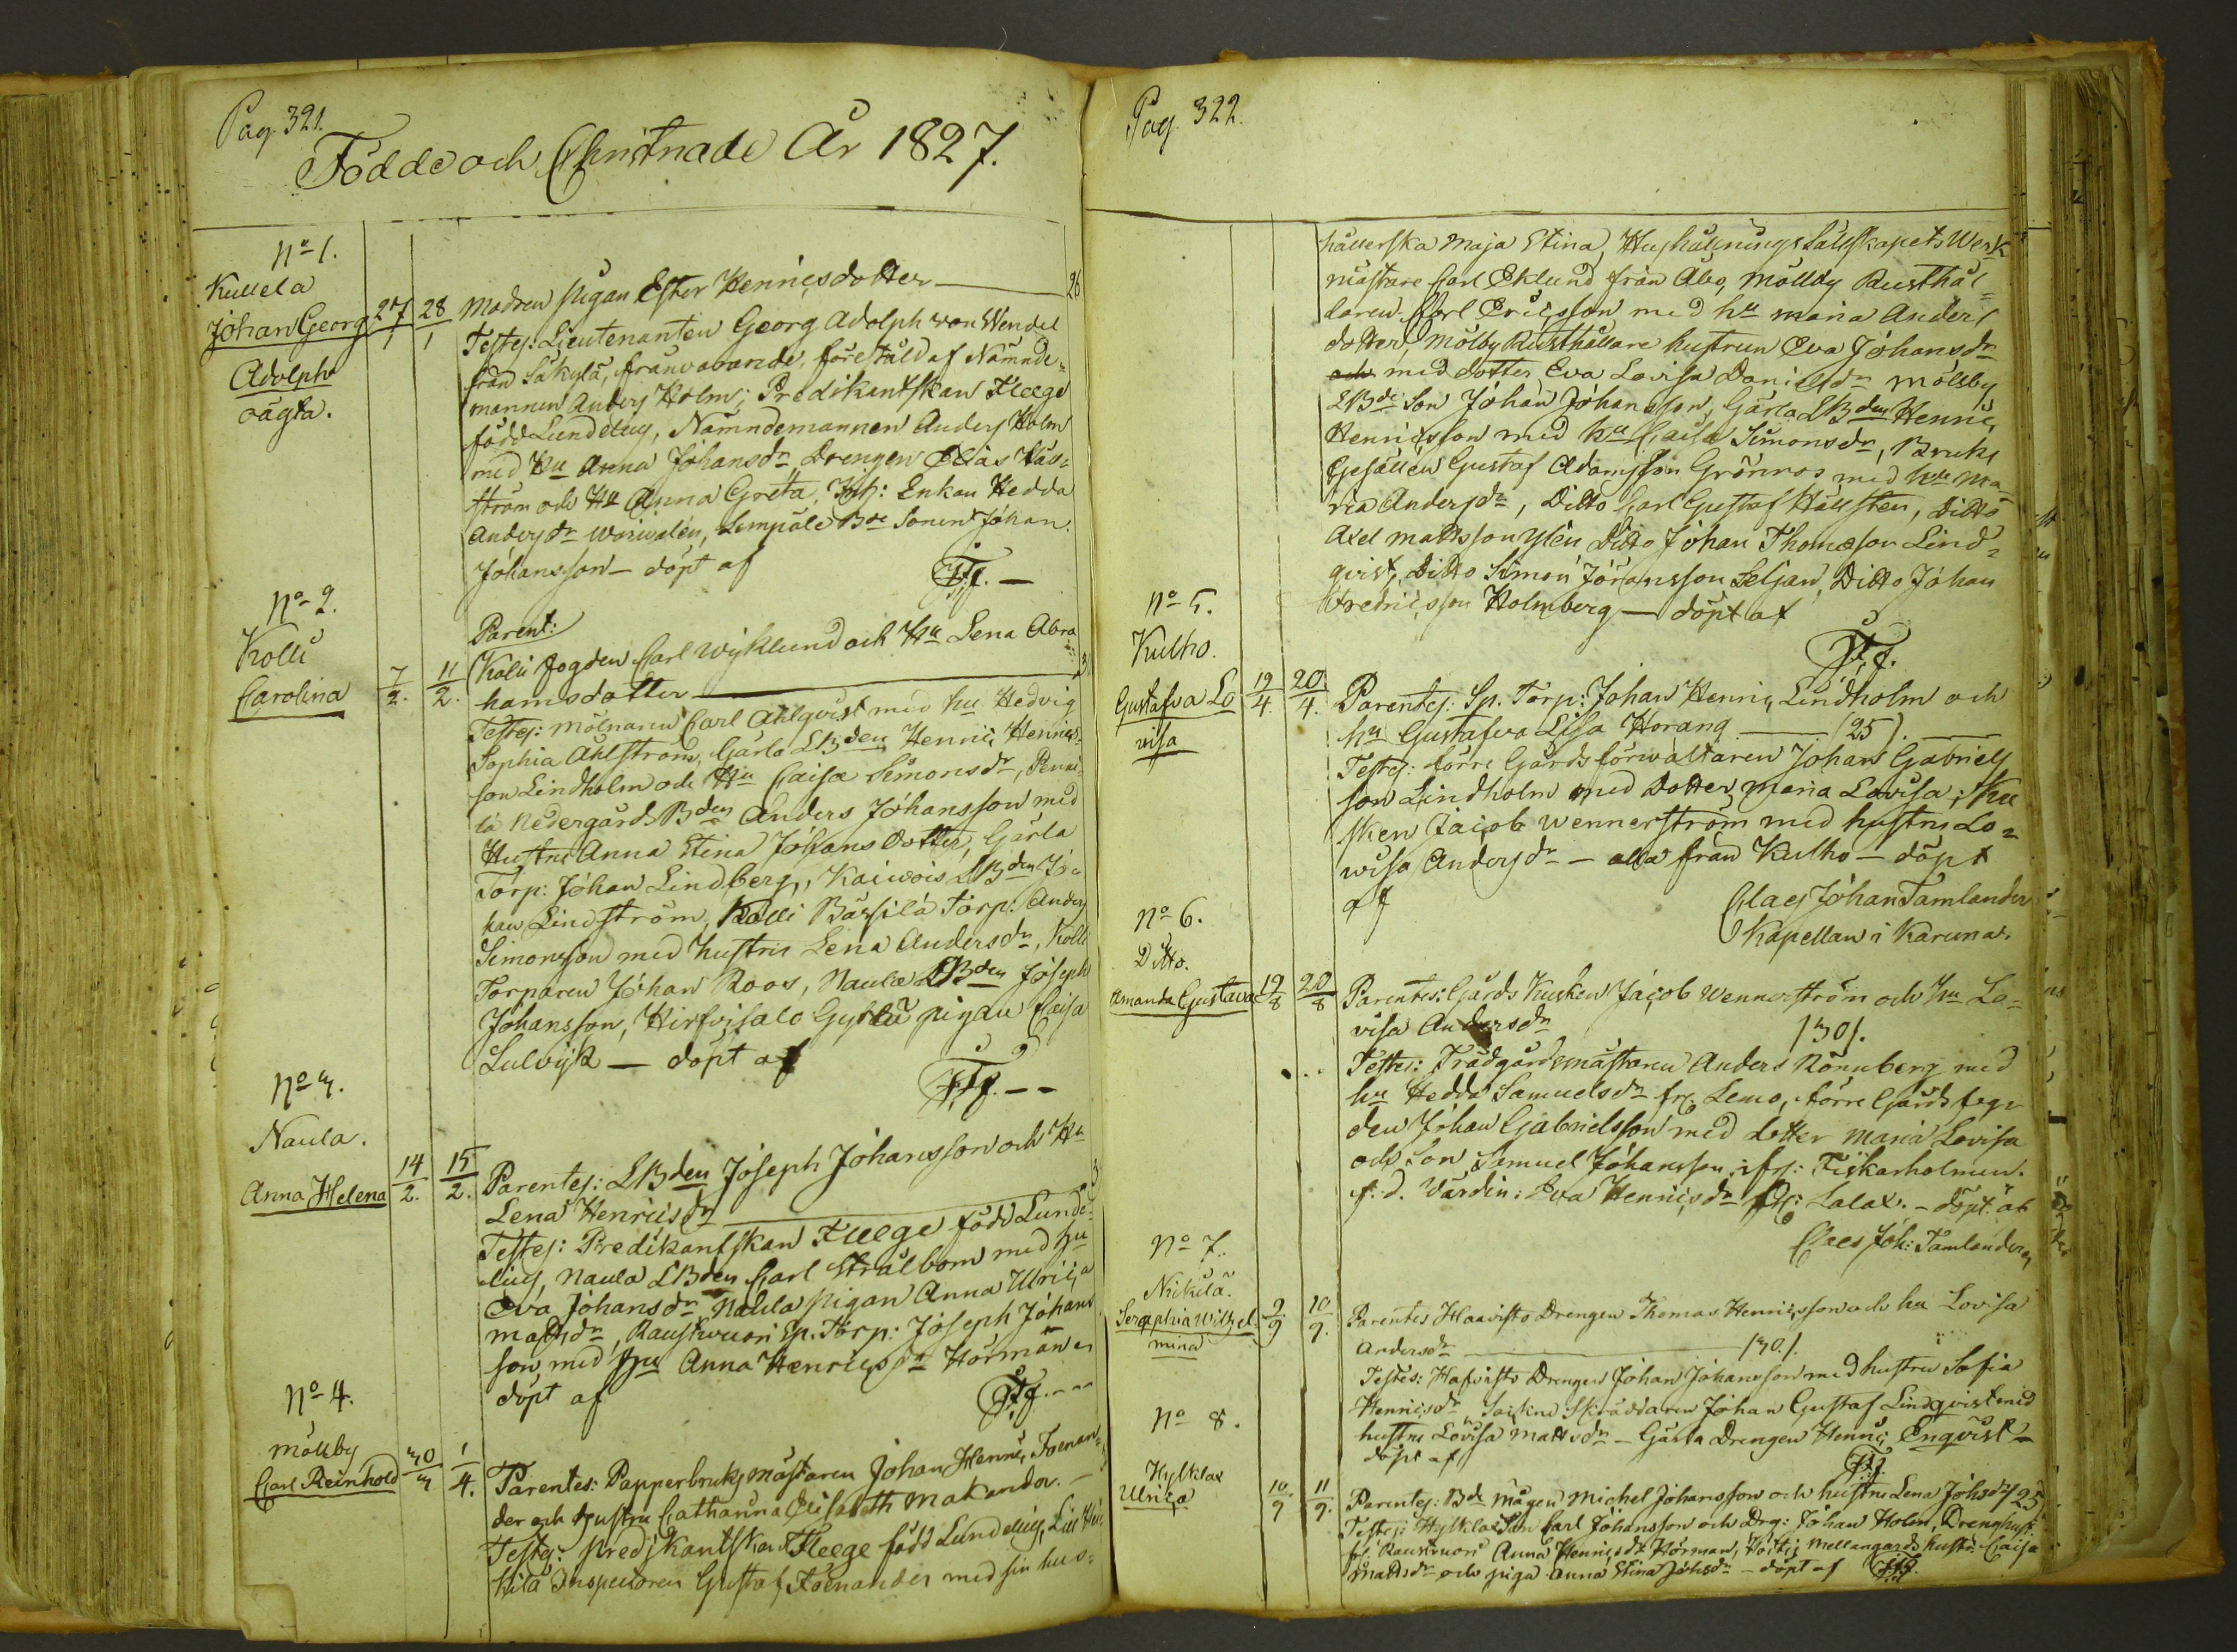 Pag. 321.
Födde och Christnade År 1827.
No 1.
Kullela
Johan Georg 27/1 28/1
Adolph
oägta.
Modren pigan Ester Henricsdotter — 26
Testes: Lieutenanten Georg Adolph von Wendel
från Säkylä, frånvarande, företräld af Nämnde=
mannen Anders Holm; Predikantskan Fleege
född Lundelius, Nämndemannen Anders Holm
med Hu Anna Johansdr Drengen Elias
ström och Hu Anna Greta, Inh: Enkan Hedda
Andersdr Warivalén, Lempälä Bde Sonen Johan
Johansson — döpt af
FTf. —
No 2.
Kolli
Carolina 7/2. 11/2.
Parent:
Kolli fogden Carl Wiklund och Hu Lena Abra
hamsdotter —
Testes: Mölnaren Carl Ahlqvist med hu Hedvig
Sophia Åhlström, Gärla LBden Henric Henrics=
son Lindholm och Hu Caisa Simonsdr, Penni=
lä Nedergårds Bden Anders Johansson med
Hustru Anna Stina Johans Dotter, Gärla
Torp: Johan Lindberg, Kaiwois LBden Jo=
han Lindström, Kolli Bässilä Torp: Anders
Simonsson med hustru Lena Andersdr, Kolli
Torparen Johan Roos, Naula LBden Joseph
Johansson, Hirfvisalo pigan Caisa
Sulvijk — döpt af
FTf. — —
No 3.
Naula.
Anna Helena 14/2. 15/2.
Parentes: LBden Joseph Johansson och Hu
Lena Henricsdr
Testes: Predikantskan Fleege född Lunde
lius, Naula LBden Carl Strålbom med hu
Eva Johansdr, Naula pigan Anna Ulrica
Mattsdr, Rauskvuori Sp. Torp: Joseph Johans
son med hu Anna Henricsdr Hörman
döpt af
FTf. — —
No 4.
Möllby
Carl Reinhold 30/3 1/4.
Parentes: Papperbruksmästaren Johan Henric Foenan=
der och hustru Catharina Elisabeth Makander. —
Testes: Predikantskan Fleege född Lundelius,
kilä Inspectoren Gustaf Foenander med sin hus=
Pag. 322.
hållerska Maja Stina, Hushållnings Sällskapets Werk
mästare Carl Eklund från Åbo, Möllby Rusthål=
laren Carl Ericsson med hu Maria Anders
dotter, Mölby Rusthållare hustrun Eva Johansdr
och med dotter Eva Lovisa Danielsdr Möllby
LBde Son Johan Johansson, Gärla LBden Henric
Henricsson med hu Caisa Simonsdr, Bruks
Gesällen Gustaf Adamsson Grönroos med hu Ma
ria Andersdr, Ditto Carl Gustaf Hällsten, Ditto
Axel Mattsson Ylén Ditto Johan Thomasson Lind=
qvist, Ditto Simon Jöransson Seljan, Ditto Johan
Fredricsson Holmberg — döpt af
FTf.
No 5.
Kulho.
Gustafva Lo 19/4. 20/4.
visa
Parentes: Sp. Torp: Johan Henric Lindholm och
hu Gustafva Lisa Norang — (25). —
Testes: förre Gårdsförwaltaren Johan Gabriels
son Lindholm med Dotter Maria Lovisa; Ku
sken Jacob Wennerström med hustru Lo=
wisa Andersdr — alla från Kulho — döpt
af
Claes Johan Tamlander
Kapellan i Karuna.
No 6.
Ditto.
Amanda Gustava 19/8 20/8
Parentes: Gårds Kusken Jacob Wennerström och hu Lo=
visa Andersdr /30/.
Testes: Trädgårdsmästaren Anders Rönnberg med
hu Hedda Samuelsdr fr. Lemo, förre Gårdsfog=
den Johan Gabrielsson med dotter Maria Lovisa
och son Samuel Johansson, ifr: Fiskarholmen.
f. d. Värdin: Eva Henricsdr fr: Salax. — döpt af
Claes Joh: Tamlander
No 7.
Nikilä.
Seraphia Wilhel 9/9 10/9.
mina
Parentes Haavisto Drengen Thomas Henricsson och hu Lovisa
Andersdr — /30/.
Testes: Hafvisto Drengen Johan Johansson med hustru Sofia
Henricsdr Skräddaren Johan Gustaf Lindqvist med
hustru Lovisa Mattsdr — Gärla Drengen Henric Enqvist —
döpt af
FTf.
No 8.
Hylkilax
Ulrica 10/9 11/9.
Parentes: Bde mågen Michel Johansson och hustru Lena Johsdr /25
Testes: Hylkilax Son Carl Johansson och Drg: Johan Holm, Drenghust
fr. Rauskvuori Anna Henricsdr Hörman, Mellangårds hustr. Caisa
Mattsdr och piga Anna Stina Johsdr — döpt af FTf.